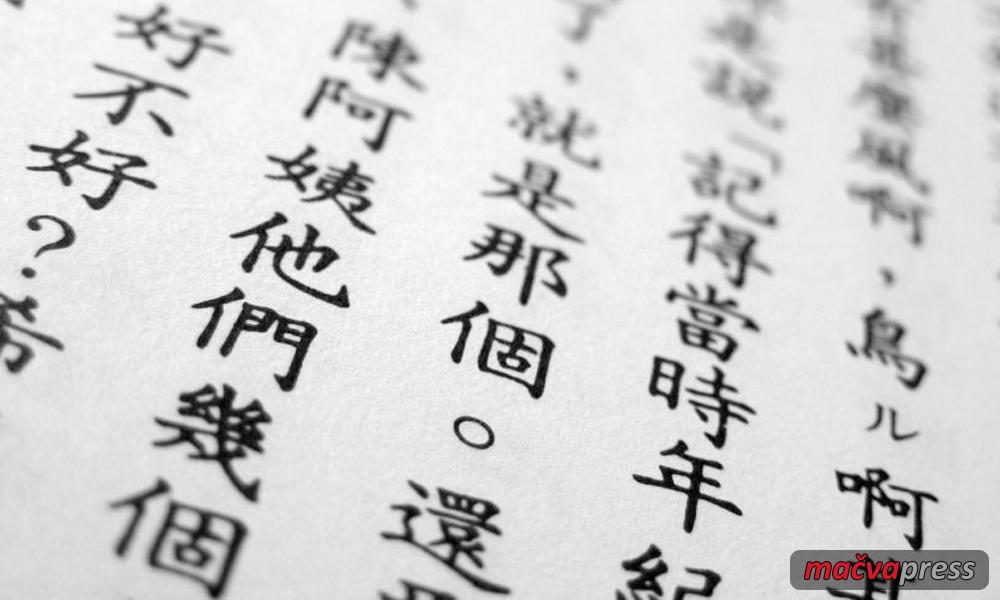 風啊，鳥ル啊
說「記得當時年紀
了，就是那個。還
陳阿姨他們幾個
好不好？希
mačvapress